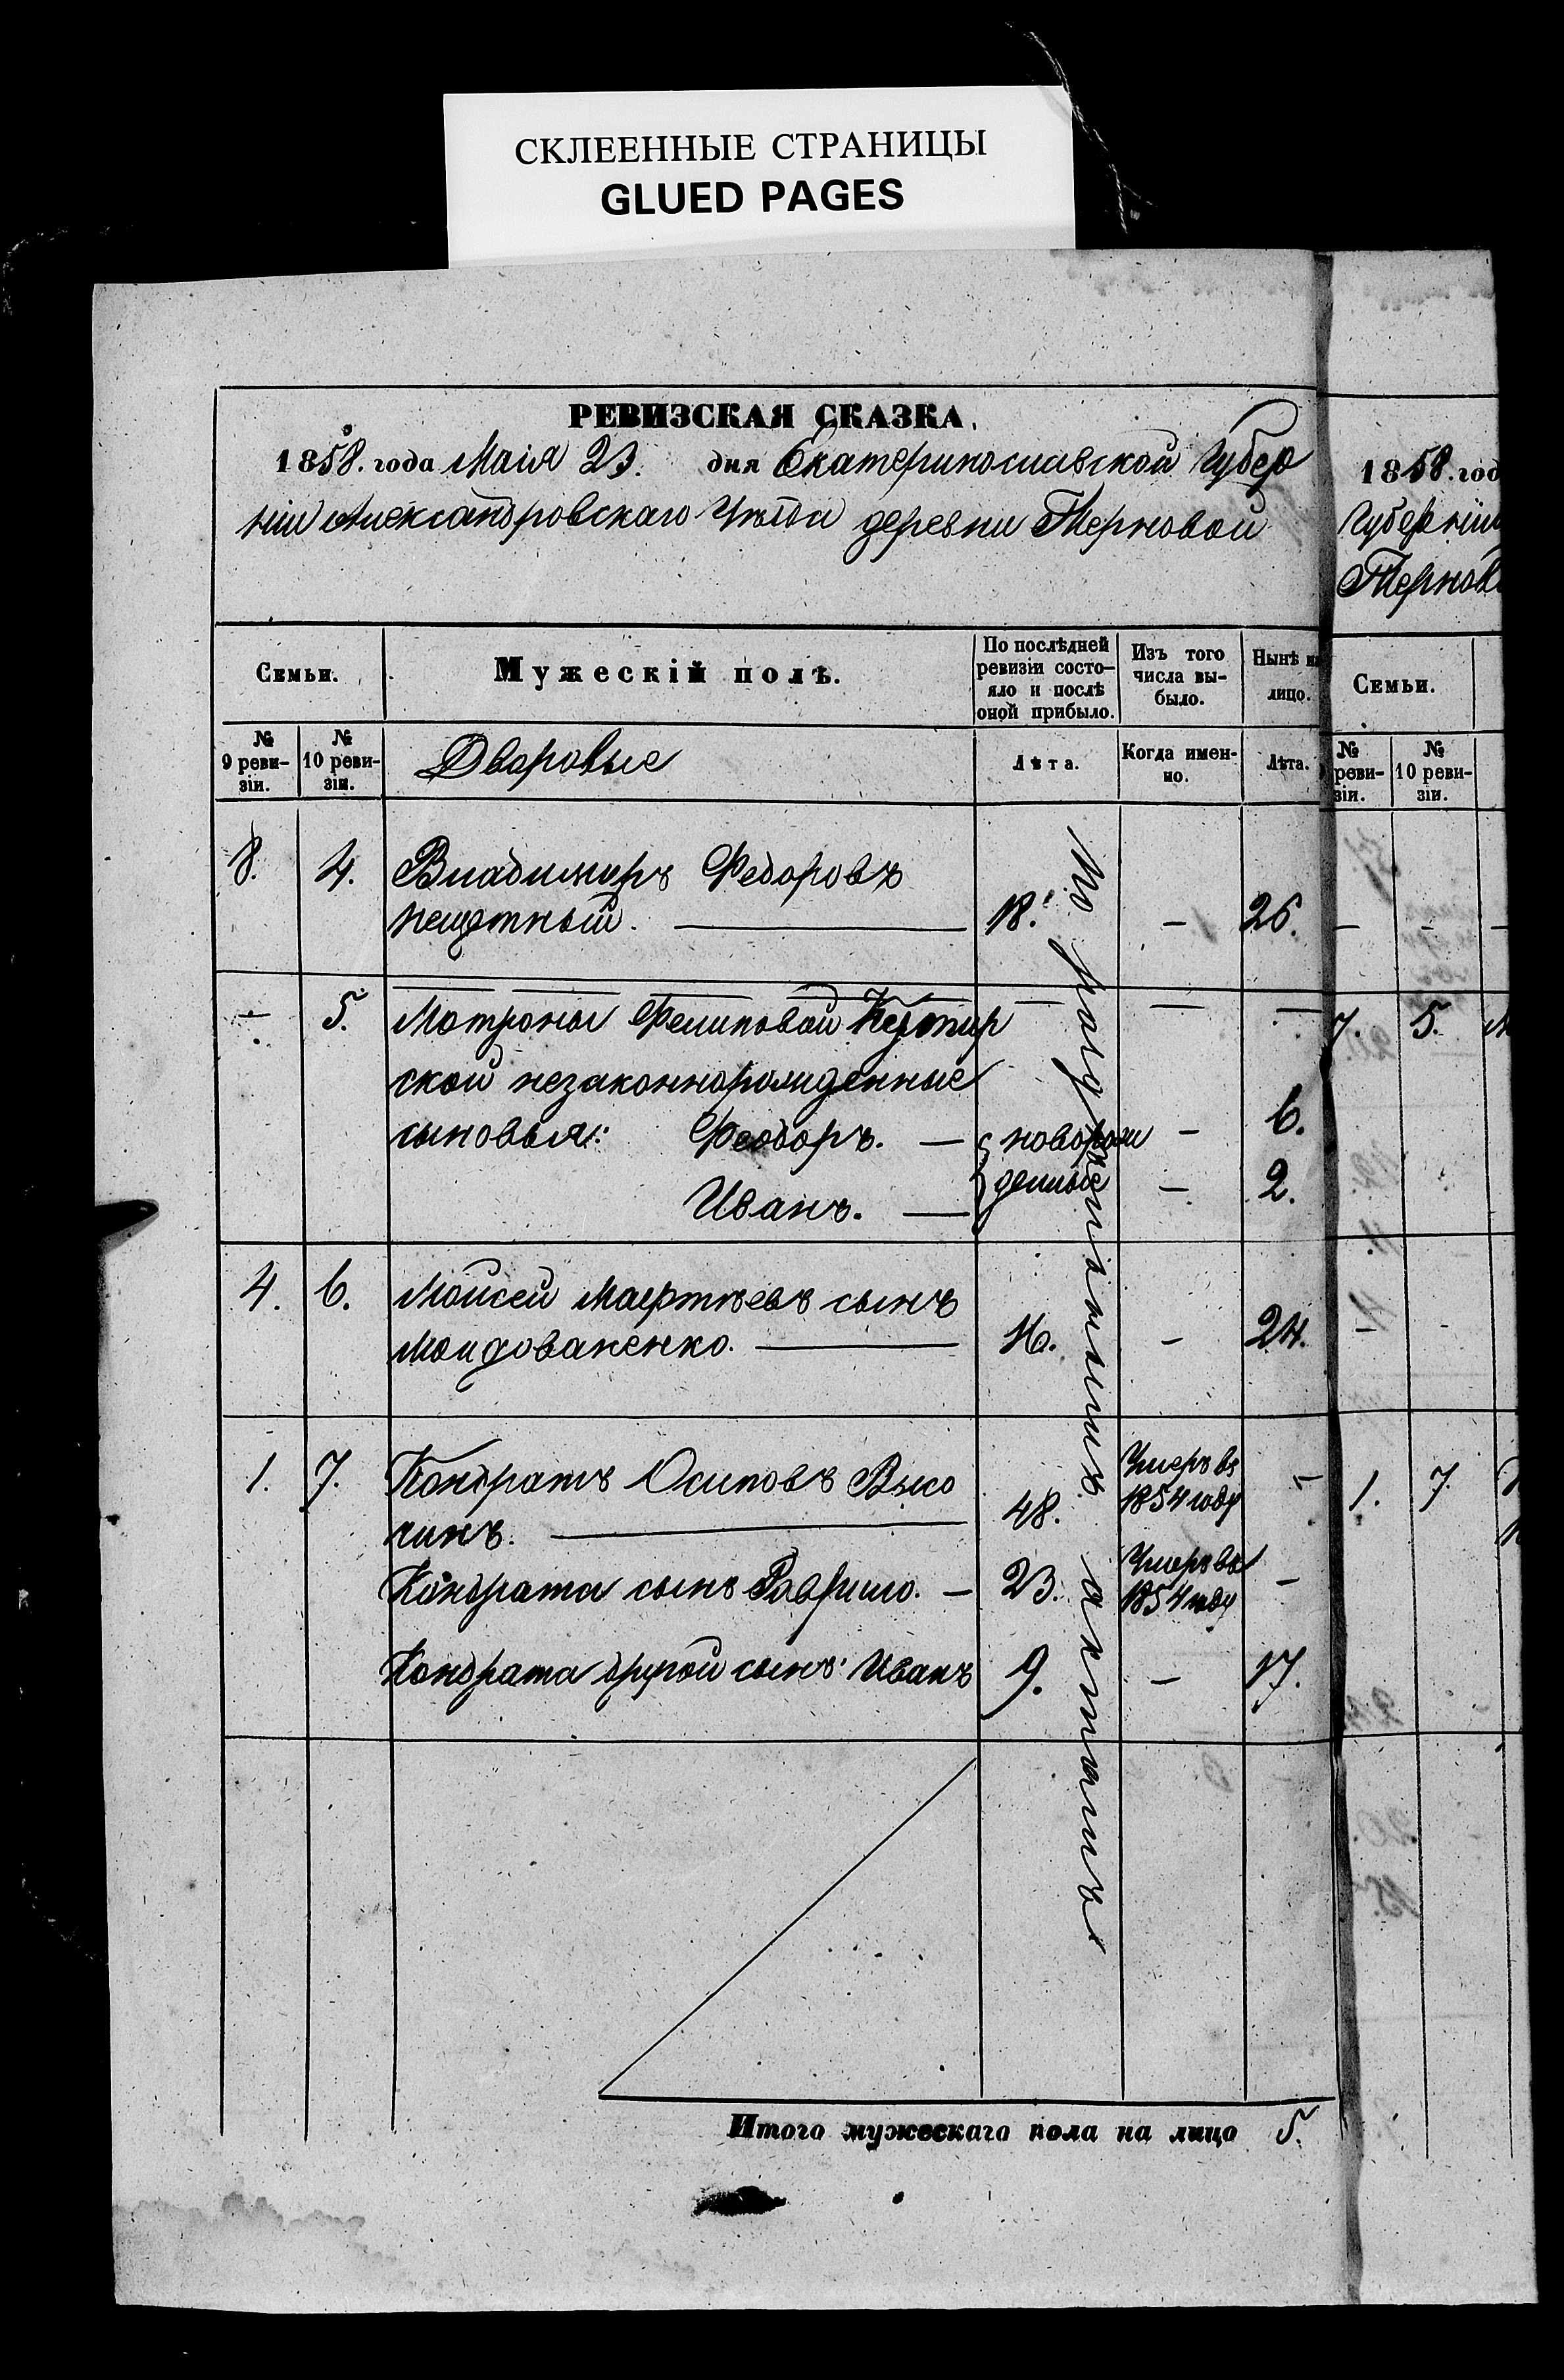 СКЛЕЕННЫЕ СТРАНИЦЫ
GLUED PAGES
РЕВИЗСКАЯ СКАЗКА.
1858. года Маія 23. дня Екатеринославской Губер
ніи Александровскаго Уѣзда деревни Терновой
Семьи.
Мужескій полъ.
По послѣдней
ревизіи состо-
яло и послѣ
оной прибыло.
Изъ того
числа вы-
было.
Нынѣ на
лицо.
№
9 реви-
зіи.
№
10 реви-
зіи.
Дворовые
Лѣта.
Когда имен-
но.
Лѣта.
8. 4. Владимиръ Федоровъ
18. - 26.
- 5. Матроны Филиповой
ской незаконнорожденные
сыновья: Феодоръ. - новорож - 6.
Иванъ. - денные - 2.
4. 6. Мойсей сынъ
Молдованенко. 16. - 24.
1. 7. Кондратъ Осиповъ Высо
чинъ. 48. Умеръ въ
1854 году -
Кондрата сынъ Гаврило. - 23. Умеръ въ
1854 году -
Кондрата другой сынъ Иванъ 9. - 17.
По
Итого мужескаго пола на лицо 5.
1858. год
Губерніи
Семьи.
№
реви-
зіи.
№
10 реви-
зіи.
7. 5.
1. 7.